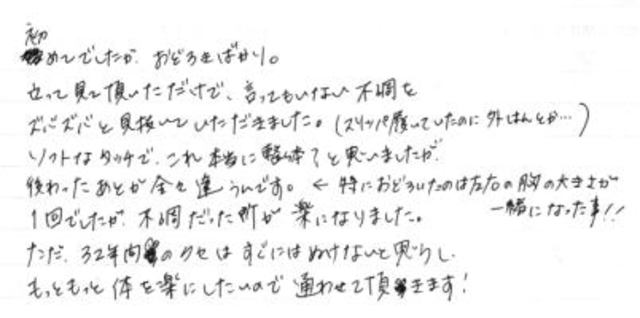 初めてでしたが、おどろきばかり。
立って見て頂いただけで、言ってもいない不調を
ズバズバと見抜いていただきました。(スリッパ履いていたのに外はんとか…)
ソフトなタッチで、これ本当に整体?と思いましたが、
終わったあとが全々違うんです。← 特におどろいたのは左右の胸の大きさが
一緒になった事!!
1回でしたが、不調だった所が楽になりました。
ただ、32年間のクセはすぐにはぬけないと思うし、
もっともっと体を楽にしたいので通わせて頂きます!